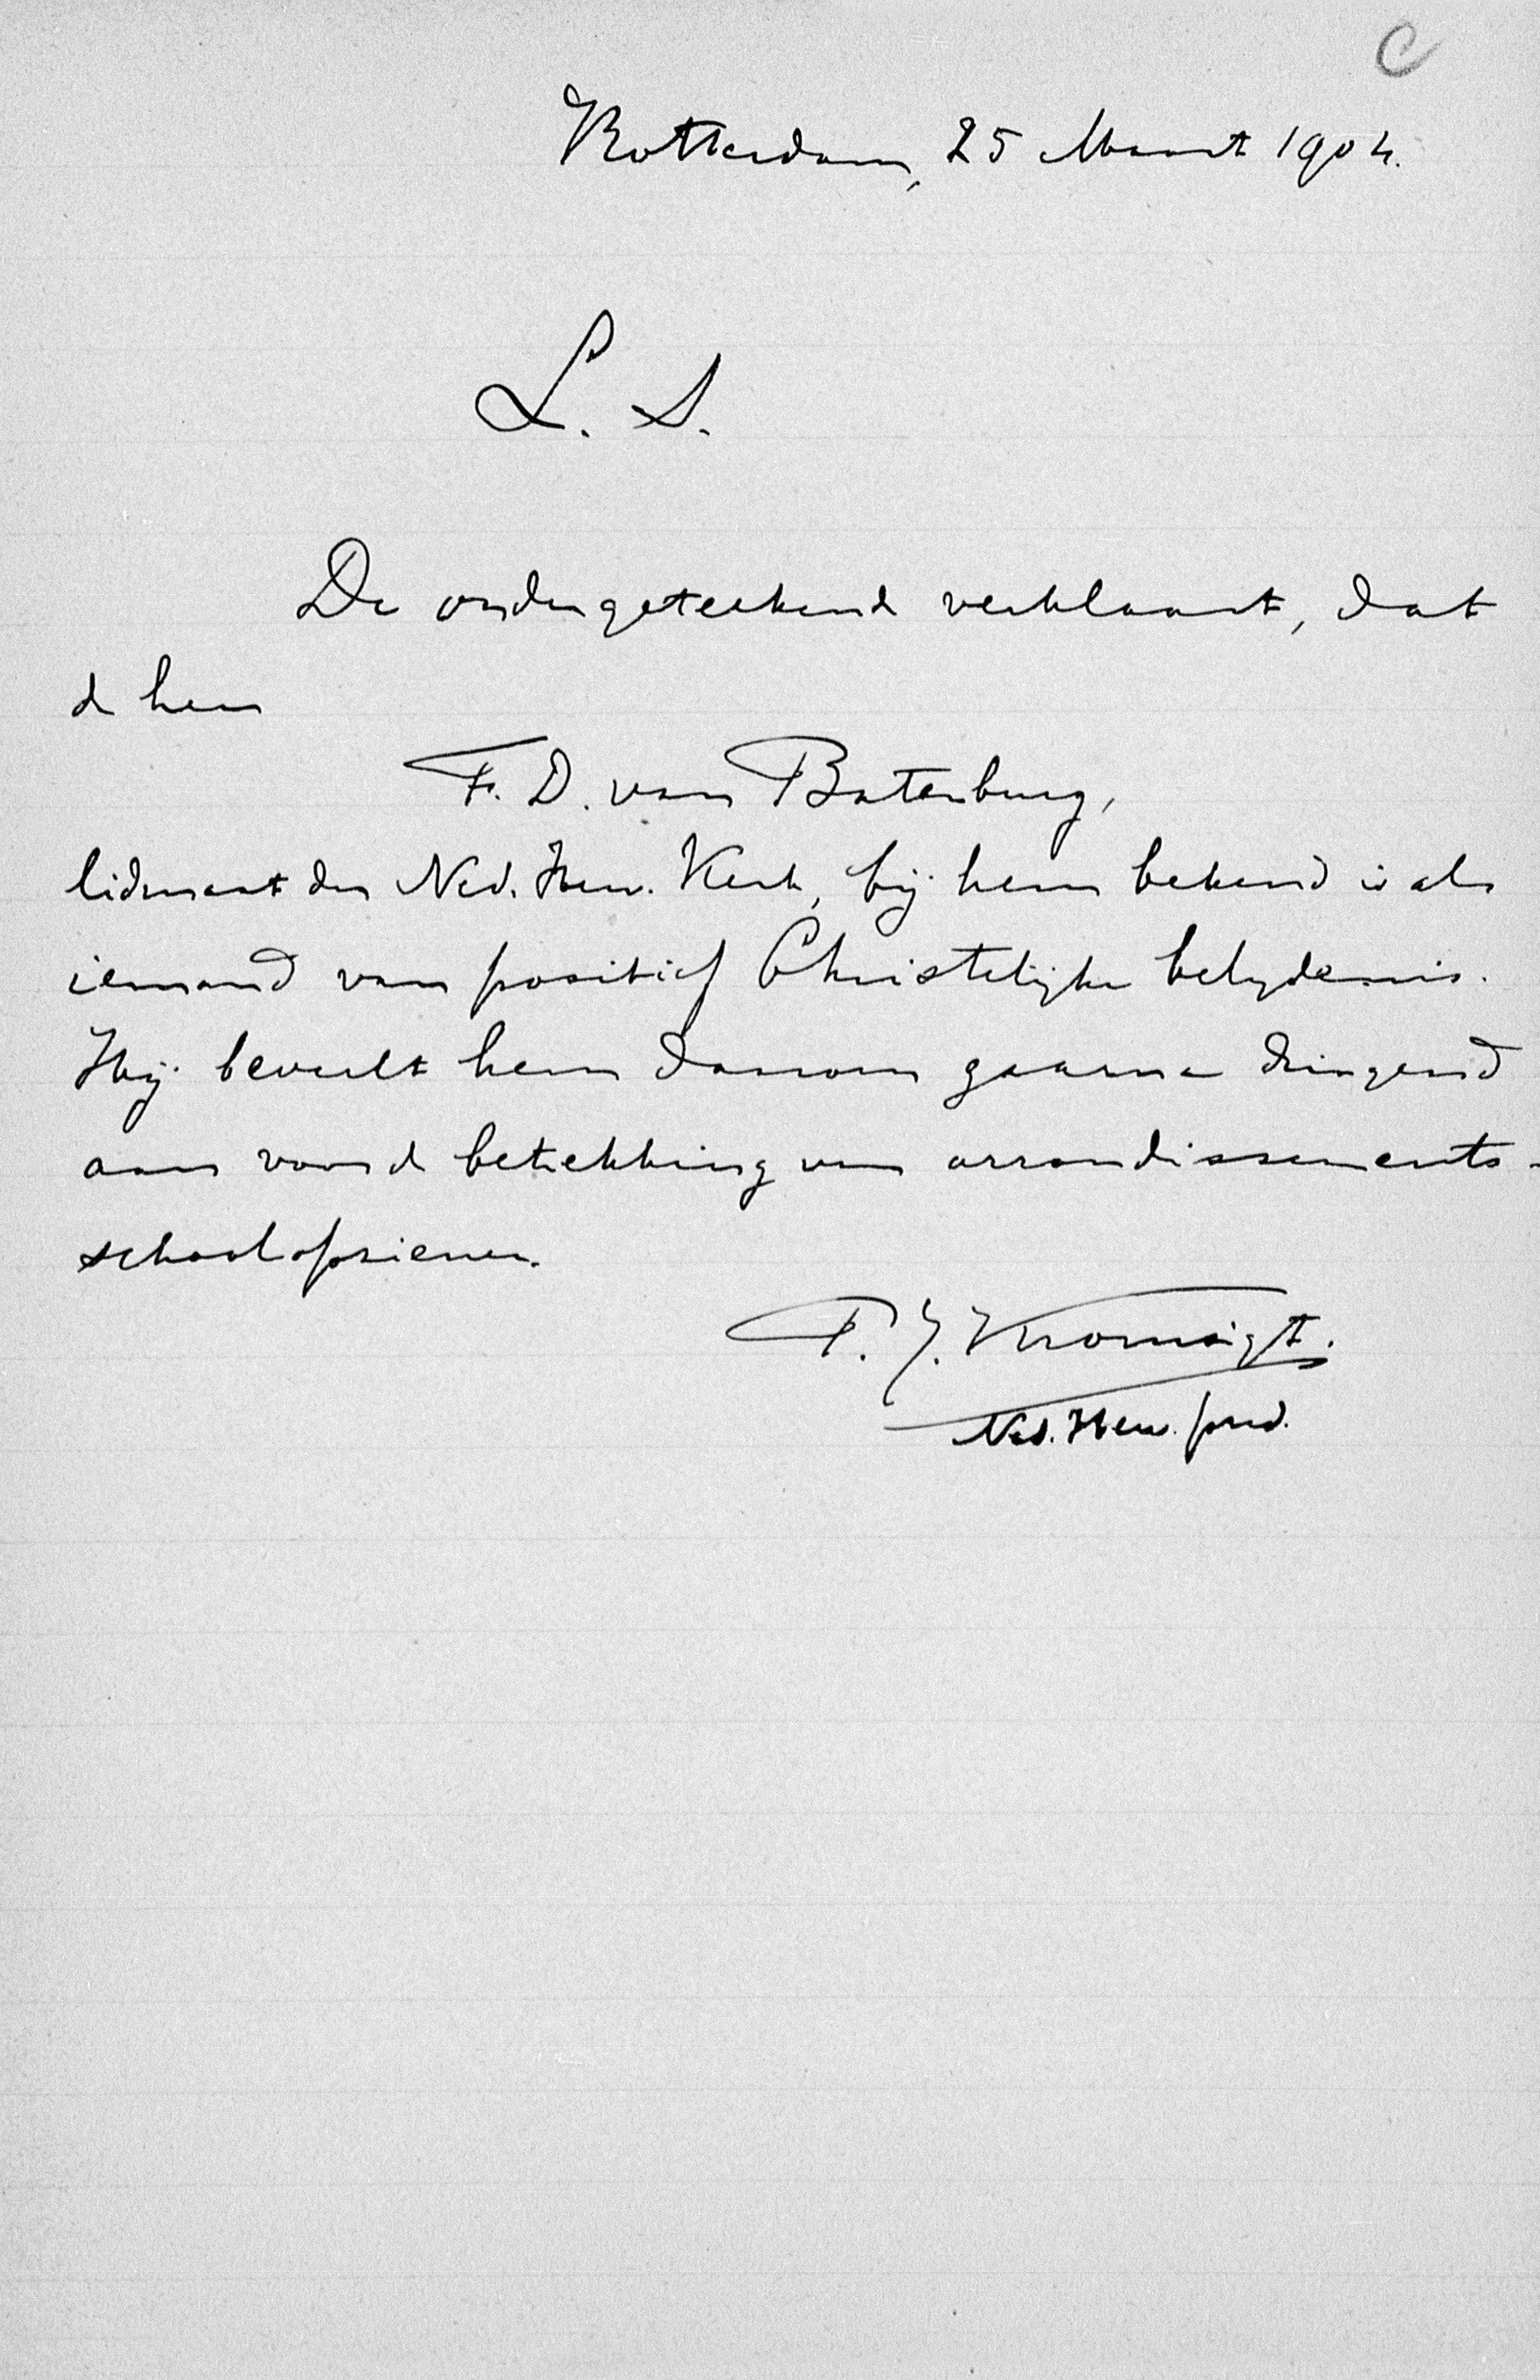 C
Rotterdam, 25 Maart 1904.
L. S.
De ondergeteekende verklaart, dat
de heer
F. D. van Batenburg,
lidmaat der Ned. Herv. Kerk, bij hem bekend is als
iemand van positief Christelijke belijdenis.
Hij beveelt hem daarom gaarne dringend
aan voor de betrekking van arrondissements-
schoolopziener.
P. J. Kromsigt.
Ned. Herv. pred.